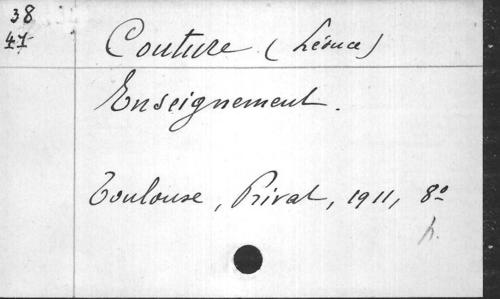 38
47
Couture (Léonce)
Enseignement.
Toulouse, Privat, 1911, 8º
h.